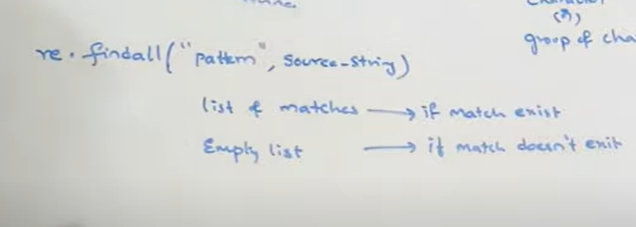 (?)
group of cha
re.findall("pattern", source-string)
list of matches → if match exist
Empty list → if match doesn't exit